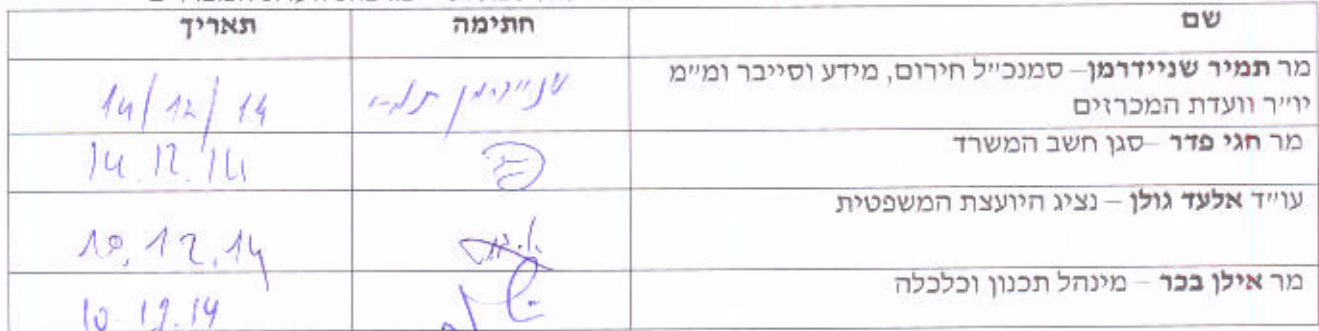 שם חתימה תאריך
מר תמיר שניידרמן – סמנכ״ל חירום, מידע וסייבר ומ״מ
יו״ר וועדת המכרזים
שניידרמן תמיר 14/12/14
מר חגי פדר – סגן חשב המשרד
14.12.14
עו״ד אלעד גולן – נציג היועצת המשפטית
10.12.14
מר אילן בכר – מינהל תכנון וכלכלה
10.12.14